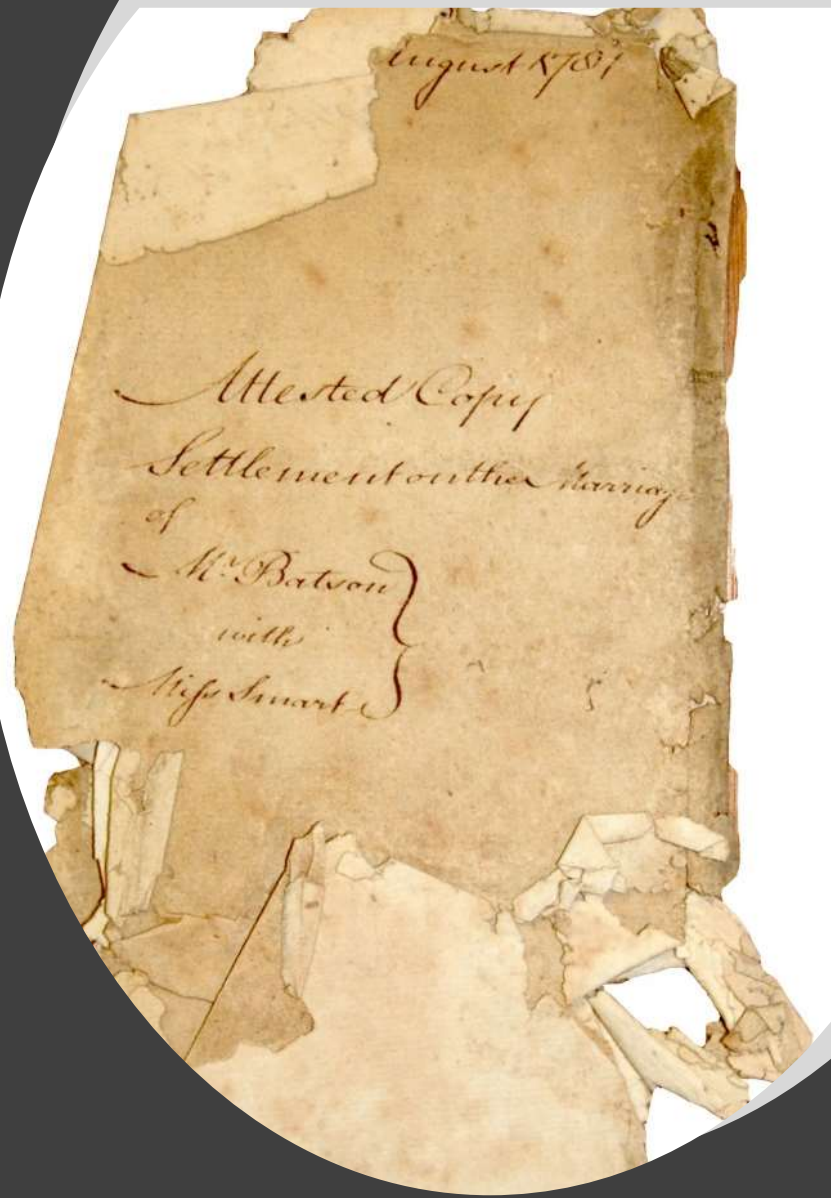 August 1781
Attested Copy
Settlement on the Marriage
of
Mr. Batson
with
Miss Smart